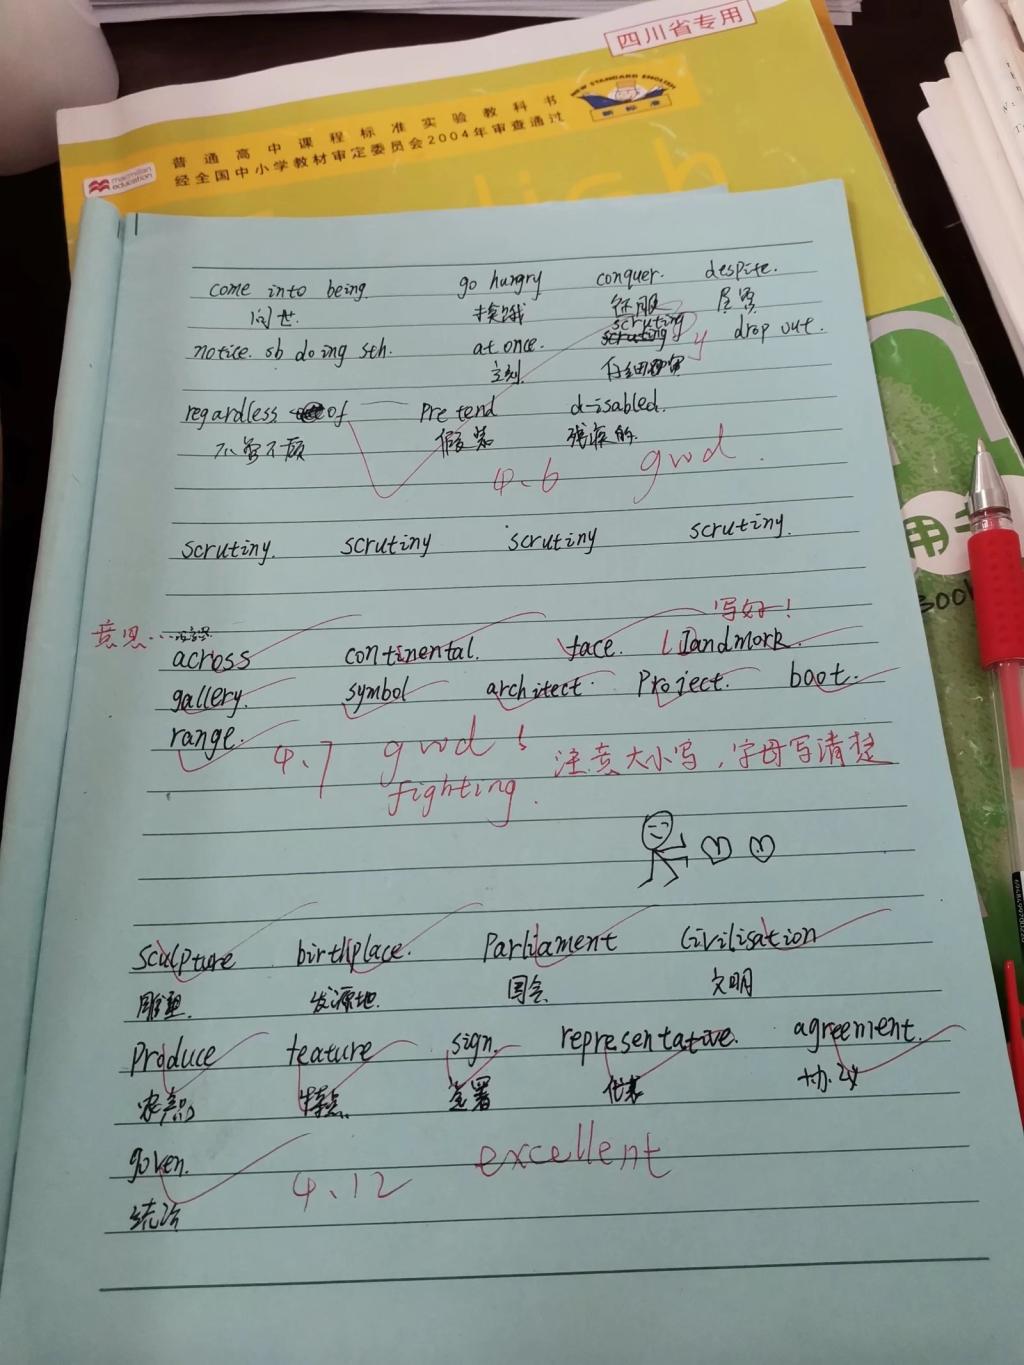 四川省专用
NEW STANDARD ENGLISH
新标准
普通高中课程标准实验教科书
经全国中小学教材审定委员会2004年审查通过
macmillan education
English
come into being. go hungry conquer. despite.
问世. 挨饿 征服 尽管
scruting
notice. sb doing sth. at once. scruting y drop out.
立刻 仔细
regardless of pretend disabled.
不管不顾 假装 残疾的.
4.6 good.
scrutiny. scrutiny scrutiny scrutiny.
写好!
意思...
across continental. face. landmark.
gallery. symbol architect. Project. boot.
range.
4.7 good!
fighting.
注意大小写,字母写清楚
sculpture birthplace. Parliament Civilisation
雕塑. 发源地. 国会 文明
Produce feature sign. representative. agreement.
农产品 特点 签署 代表 协议
goven.
统治
4.12 excellent